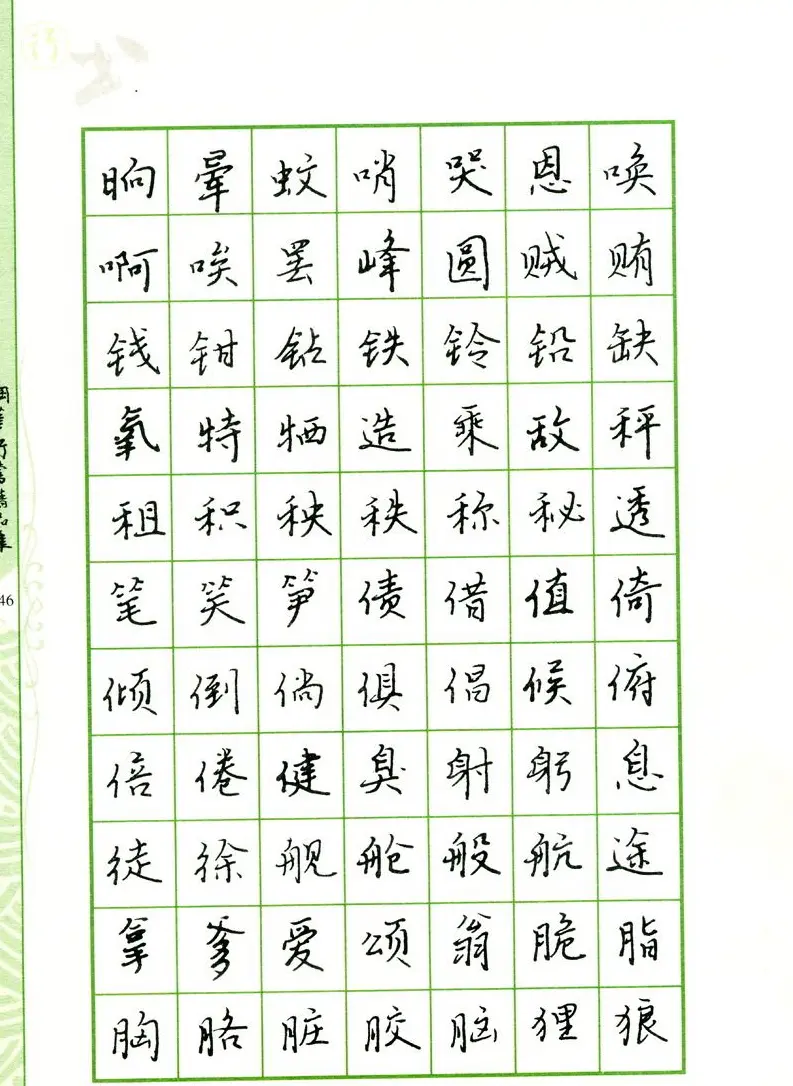 晌晕蚊哨哭恩唤
啊唉罢峰圆贼贿
钱钳钻铁铃铅缺
氧特牺造乘敌秤
租积秧秩称秘透
笔笑笋债借值倚
倾倒倘俱倡候俯
倍倦健臭射躬息
徒徐舰舱般航途
拿爹爱颂翁脆脂
胸胳脏胶脑狸狼
46